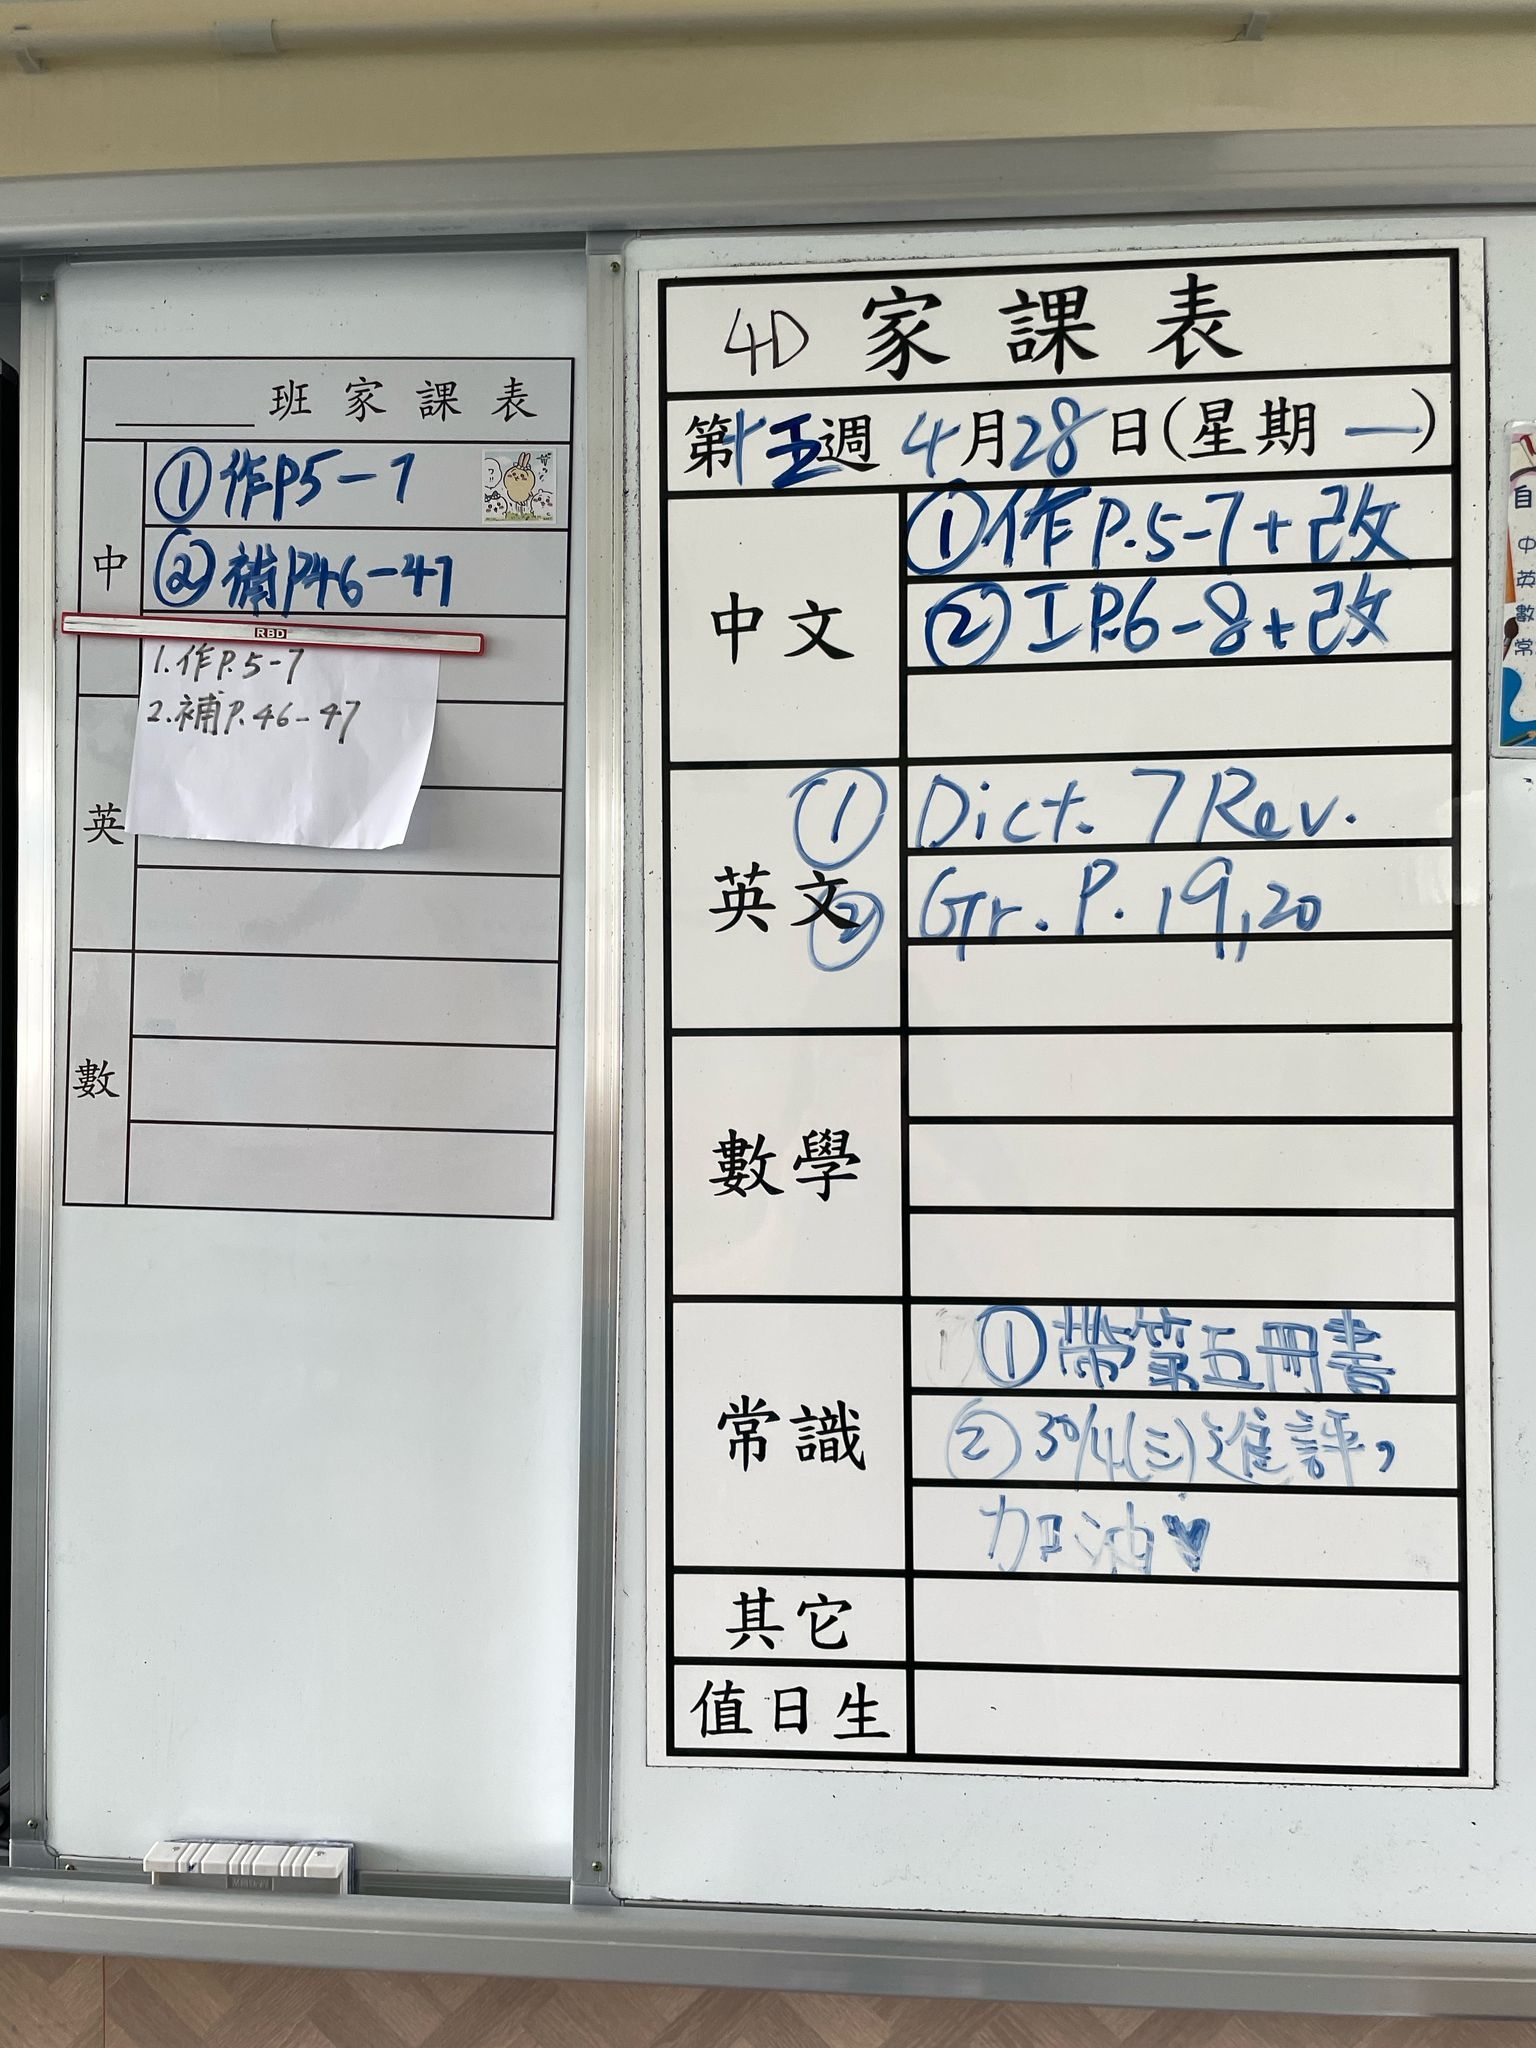 班家課表
中
①作P5-7
②補P46-47
RBD
1.作P.5-7
2.補P.46-47
英
數
4D 家課表
第十五週 4月28日(星期一)
中文
①作P.5-7+改
②工P.6-8+改
英文
① Dict. 7 Rev.
② Gr. P. 19,20
數學
常識
①帶第五冊書
②30/4(三)進評,
加油♥
其它
值日生
自
中
英
數
常